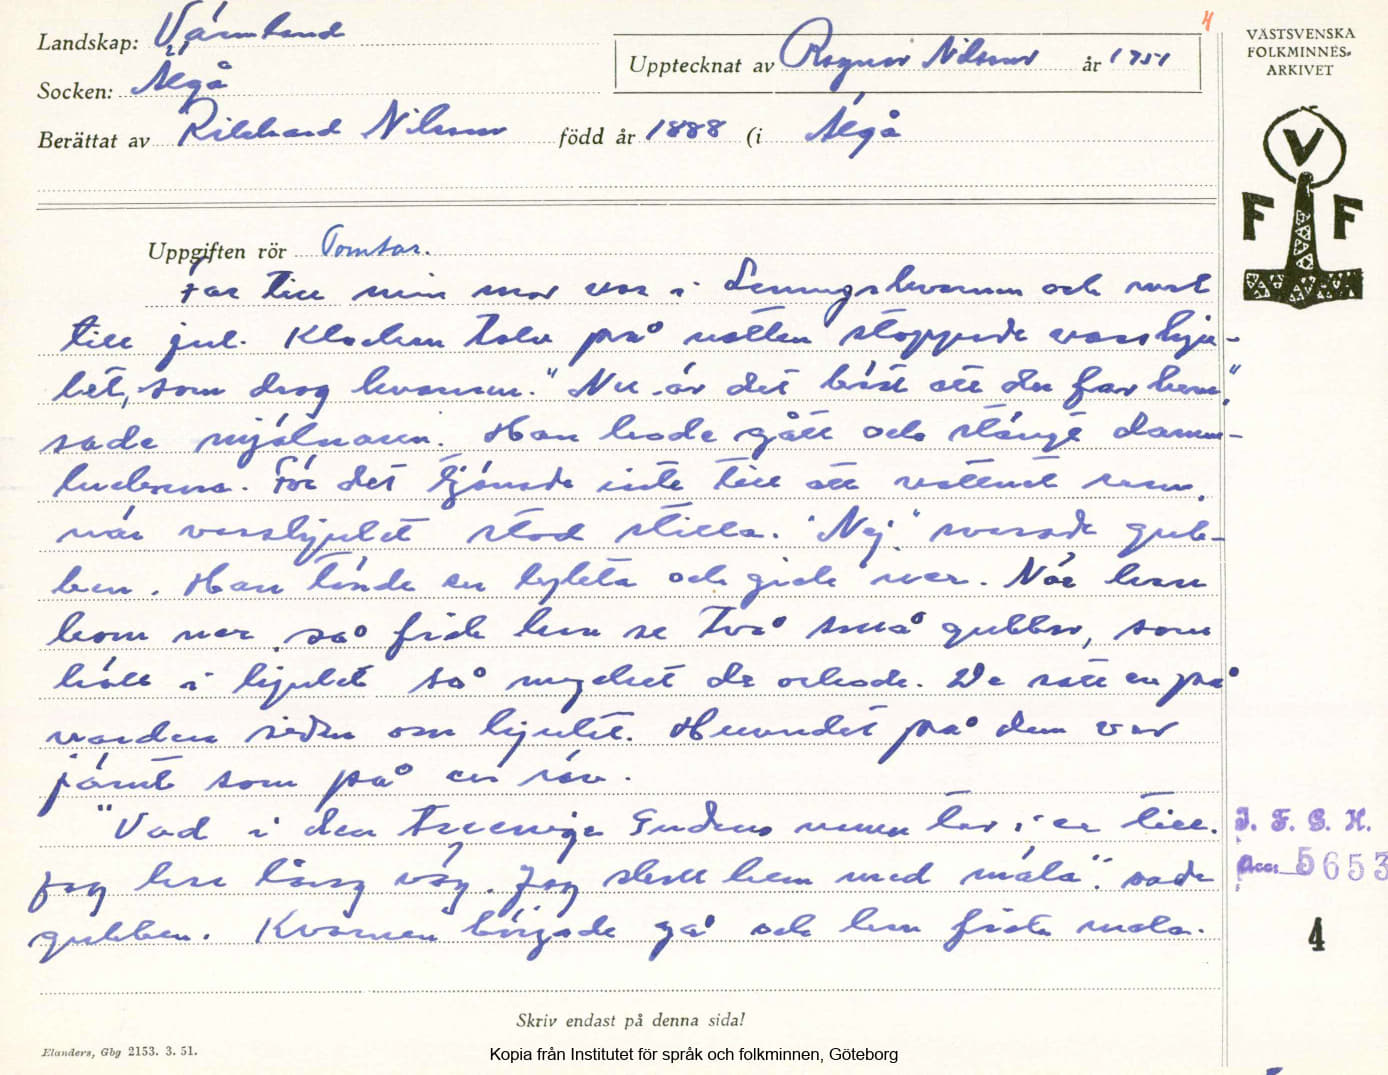 4
Landskap: Värmland
Socken: Älgå
Upptecknat av Ragnar Nilsson år 1951
Berättat av Rikhard Nilsson född år 1888 (i Älgå
VÄSTSVENSKA
FOLKMINNES-
ARKIVET
V
F F
Uppgiften rör Tomtar.
Far till min mor var i kvarnen och mol
till jul. Klockan tolv på natten stoppade vasshju-
let, som drog kvarnen. "Nu är det bäst att du far hem",
sade mjölnaren. Han hade gått och stängt damm-
luckorna. För det tjänade inte till att vattnet rann,
när vasshjulet stod stilla. "Nej", svarade gub-
ben. Han tände en lykta och gick ner. När han
kom ner, så fick han se två små gubbar, som
höll i hjulet så mycket de orkade. De satt en på
vardera sidan om hjulet. Huvudet på dem var
jämt som på en räv.
"Vad i den treenige Gudens namn tar i er till.
Jag har lång väg. Jag skall hem med mäla". sade
gubben. Kvarnen började gå och han fick mala.
I. F. G. H.
Acc. 5653
4
Skriv endast på denna sida!
Elanders, Gbg 2153. 3. 51.
Kopia från Institutet för språk och folkminnen, Göteborg